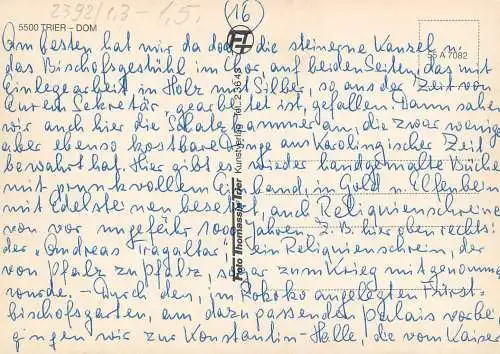 2392/1,3 - 1,5.
16
5500 TRIER – DOM
55 A 7082
Foto Thomassin Trier Kunstverlag
Am besten hat mir da doch die steinerne Kanzel u.
das Bischofsgestühl im Chor auf beiden Seiten, das mit
Einlegearbeit in Holz mit Silber, so aus der Zeit von
Eurem Sekretär, gearbeitet ist, gefallen. Dann sahen
wir auch hier die Schatzkammer an, die zwar wenige
aber ebenso kostbare Dinge aus Karolingischer Zeit
bewahrt hat. Hier gibt es wieder handgemalte Bücher
mit prunkvollem Einband, in Gold u. Elfenbein
mit Edelsteinen besetzt, auch Religuienschreine
von vor ungefähr 1000 Jahren. Z.B. hier oben rechts:
der "Andreas Tragaltar", ein Religuienschrein, der
von Pfalz zu Pfalz, sogar zum Krieg mitgenommen
wurde. – Durch den, im Rokoko angelegten Fürst-
bischofsgarten, am dazu passenden Palais vorbei,
gingen wir zur Konstantin-Halle, die vom Kaiser